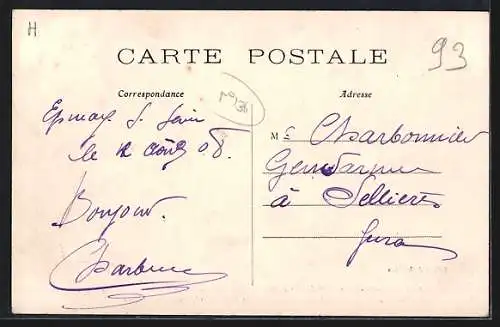 H
93
CARTE POSTALE
Correspondance
Adresse
Epinay S. Seine
le 12 Août 08.
Bonjour.
M r Charbonnier
Gendarme
à Sellières
Jura